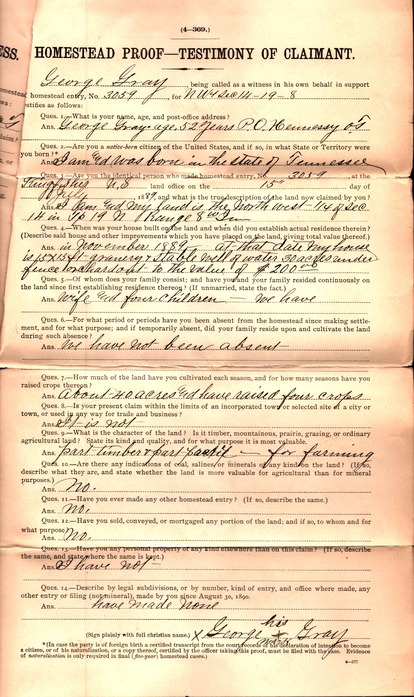 (4—369.)
ESS.
HOMESTEAD PROOF—TESTIMONY OF CLAIMANT.
George Gray, being called as a witness in his own behalf in support
homestead entry, No. 3059, for NW4 Sec 14-19-8
testifies as follows:
Ques. 1.—What is your name, age, and post-office address?
Ans. George Gray age 52 years P.O. Hennessy O.T
Ques. 2.—Are you a native-born citizen of the United States, and if so, in what State or Territory were
you born?*
Ans. I am and was born in the State of Tennessee
Ques. 3.—Are you the identical person who made homestead entry, No. 3059, at the
Kingfisher land office on the 15" day of
1889, and what is the true description of the land now claimed by you?
Ans. I am and my land is the North West 1/4 of Sec
14 in Tp 19 N of Range 8
Ques. 4.—When was your house built on the land and when did you establish actual residence therein?
(Describe said house and other improvements which you have placed on the land, giving total value thereof.)
Ans. in November 1889, at that date my house
is 15 x 15 ft granery & Stable well of water 30 acres under
fence orchard out to the value of $200.00
Ques. 5.—Of whom does your family consist; and have you and your family resided continuously on
the land since first establishing residence thereon? (If unmarried, state the fact.)
Ans. Wife and four children — We have
Ques. 6.—For what period or periods have you been absent from the homestead since making settle-
ment, and for what purpose; and if temporarily absent, did your family reside upon and cultivate the land
during such absence?
Ans. We have not been absent
Ques. 7.—How much of the land have you cultivated each season, and for how many seasons have you
raised crops thereon?
Ans. About 40 acres and have raised four crops
Ques. 8.—Is your present claim within the limits of an incorporated town or selected site of a city or
town, or used in any way for trade and business?
Ans. It is not
Ques. 9.—What is the character of the land? Is it timber, mountainous, prairie, grazing, or ordinary
agricultural land? State its kind and quality, and for what purpose it is most valuable.
Ans. part timber & part — for farming
Ques. 10.—Are there any indications of coal, salines, or minerals of any kind on the land? (If so,
describe what they are, and state whether the land is more valuable for agricultural than for mineral
purposes.)
Ans. No.
Ques. 11.—Have you ever made any other homestead entry? (If so, describe the same.)
Ans. No.
Ques. 12.—Have you sold, conveyed, or mortgaged any portion of the land; and if so, to whom and for
what purpose?
Ans. No.
Ques. 13.—Have you any personal property of any kind elsewhere than on this claim? (If so, describe
the same, and state where the same is kept.)
Ans. I have not
Ques. 14.—Describe by legal subdivisions, or by number, kind of entry, and office where made, any
other entry or filing (not mineral), made by you since August 30, 1890.
Ans. have made none
his
(Sign plainly with full christian name.) X George X Gray
mark
*(In case the party is of foreign birth a certified transcript from the court records of his declaration of intention to become
a citizen, or of his naturalization, or a copy thereof, certified by the officer taking this proof, must be filed with the case. Evidence
of naturalization is only required in final (five-year) homestead cases.)